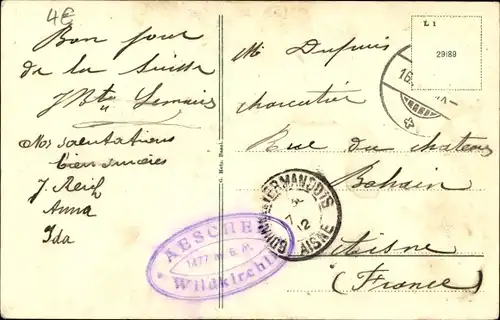 4€
Bon jour
de la Suisse
J Bte Lemaire
Nos salutations
bien sincères
J. Reich
Anna
Ida
Mr Dupuis
charcutier
Rue du chateau
Bohain
Aisne
(France)
L 1
29189
16.
BOHAIN-EN-VERMANDOIS
7
12
AISNE
AESCHER
1477 m ü. M.
Wildkirchli